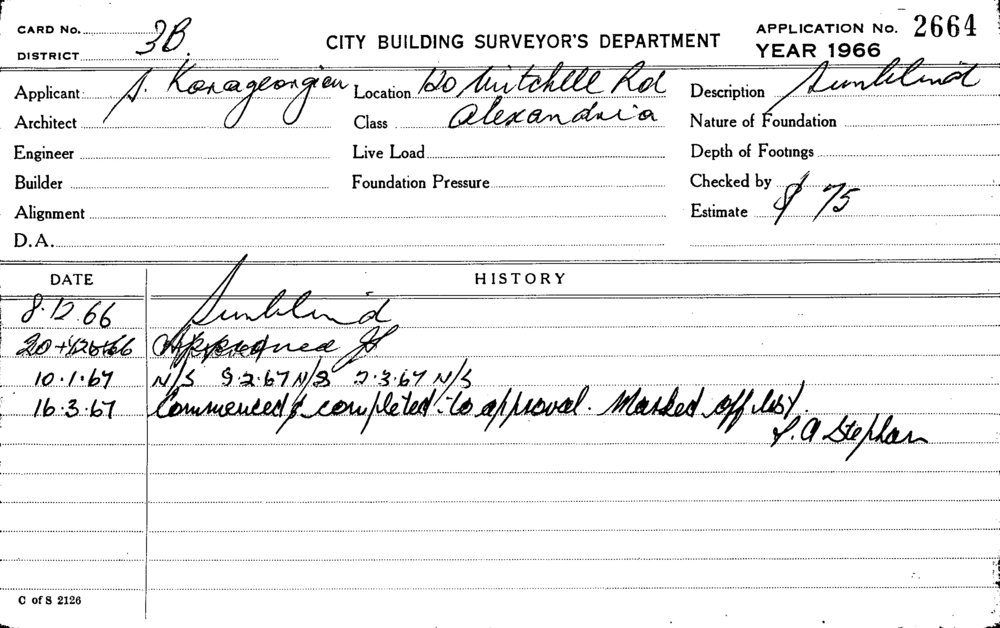 CARD No. 3B.
DISTRICT
CITY BUILDING SURVEYOR'S DEPARTMENT
APPLICATION No. 2664
YEAR 1966
Applicant S. Karageorgiou
Location 120 Mitchell Rd
Description Sunblind
Architect
Class Alexandria
Nature of Foundation
Engineer
Live Load
Depth of Footings
Builder
Foundation Pressure
Checked by
Alignment
Estimate $ 75
D.A.
DATE HISTORY
8.12.66 Sunblind
20 12 66 Approved
10.1.67 N/S 9.2.67 N/S 2.3.67 N/S
16.3.67 Commenced & completed to approval. Marked off list.
Stephan
C of S 2126